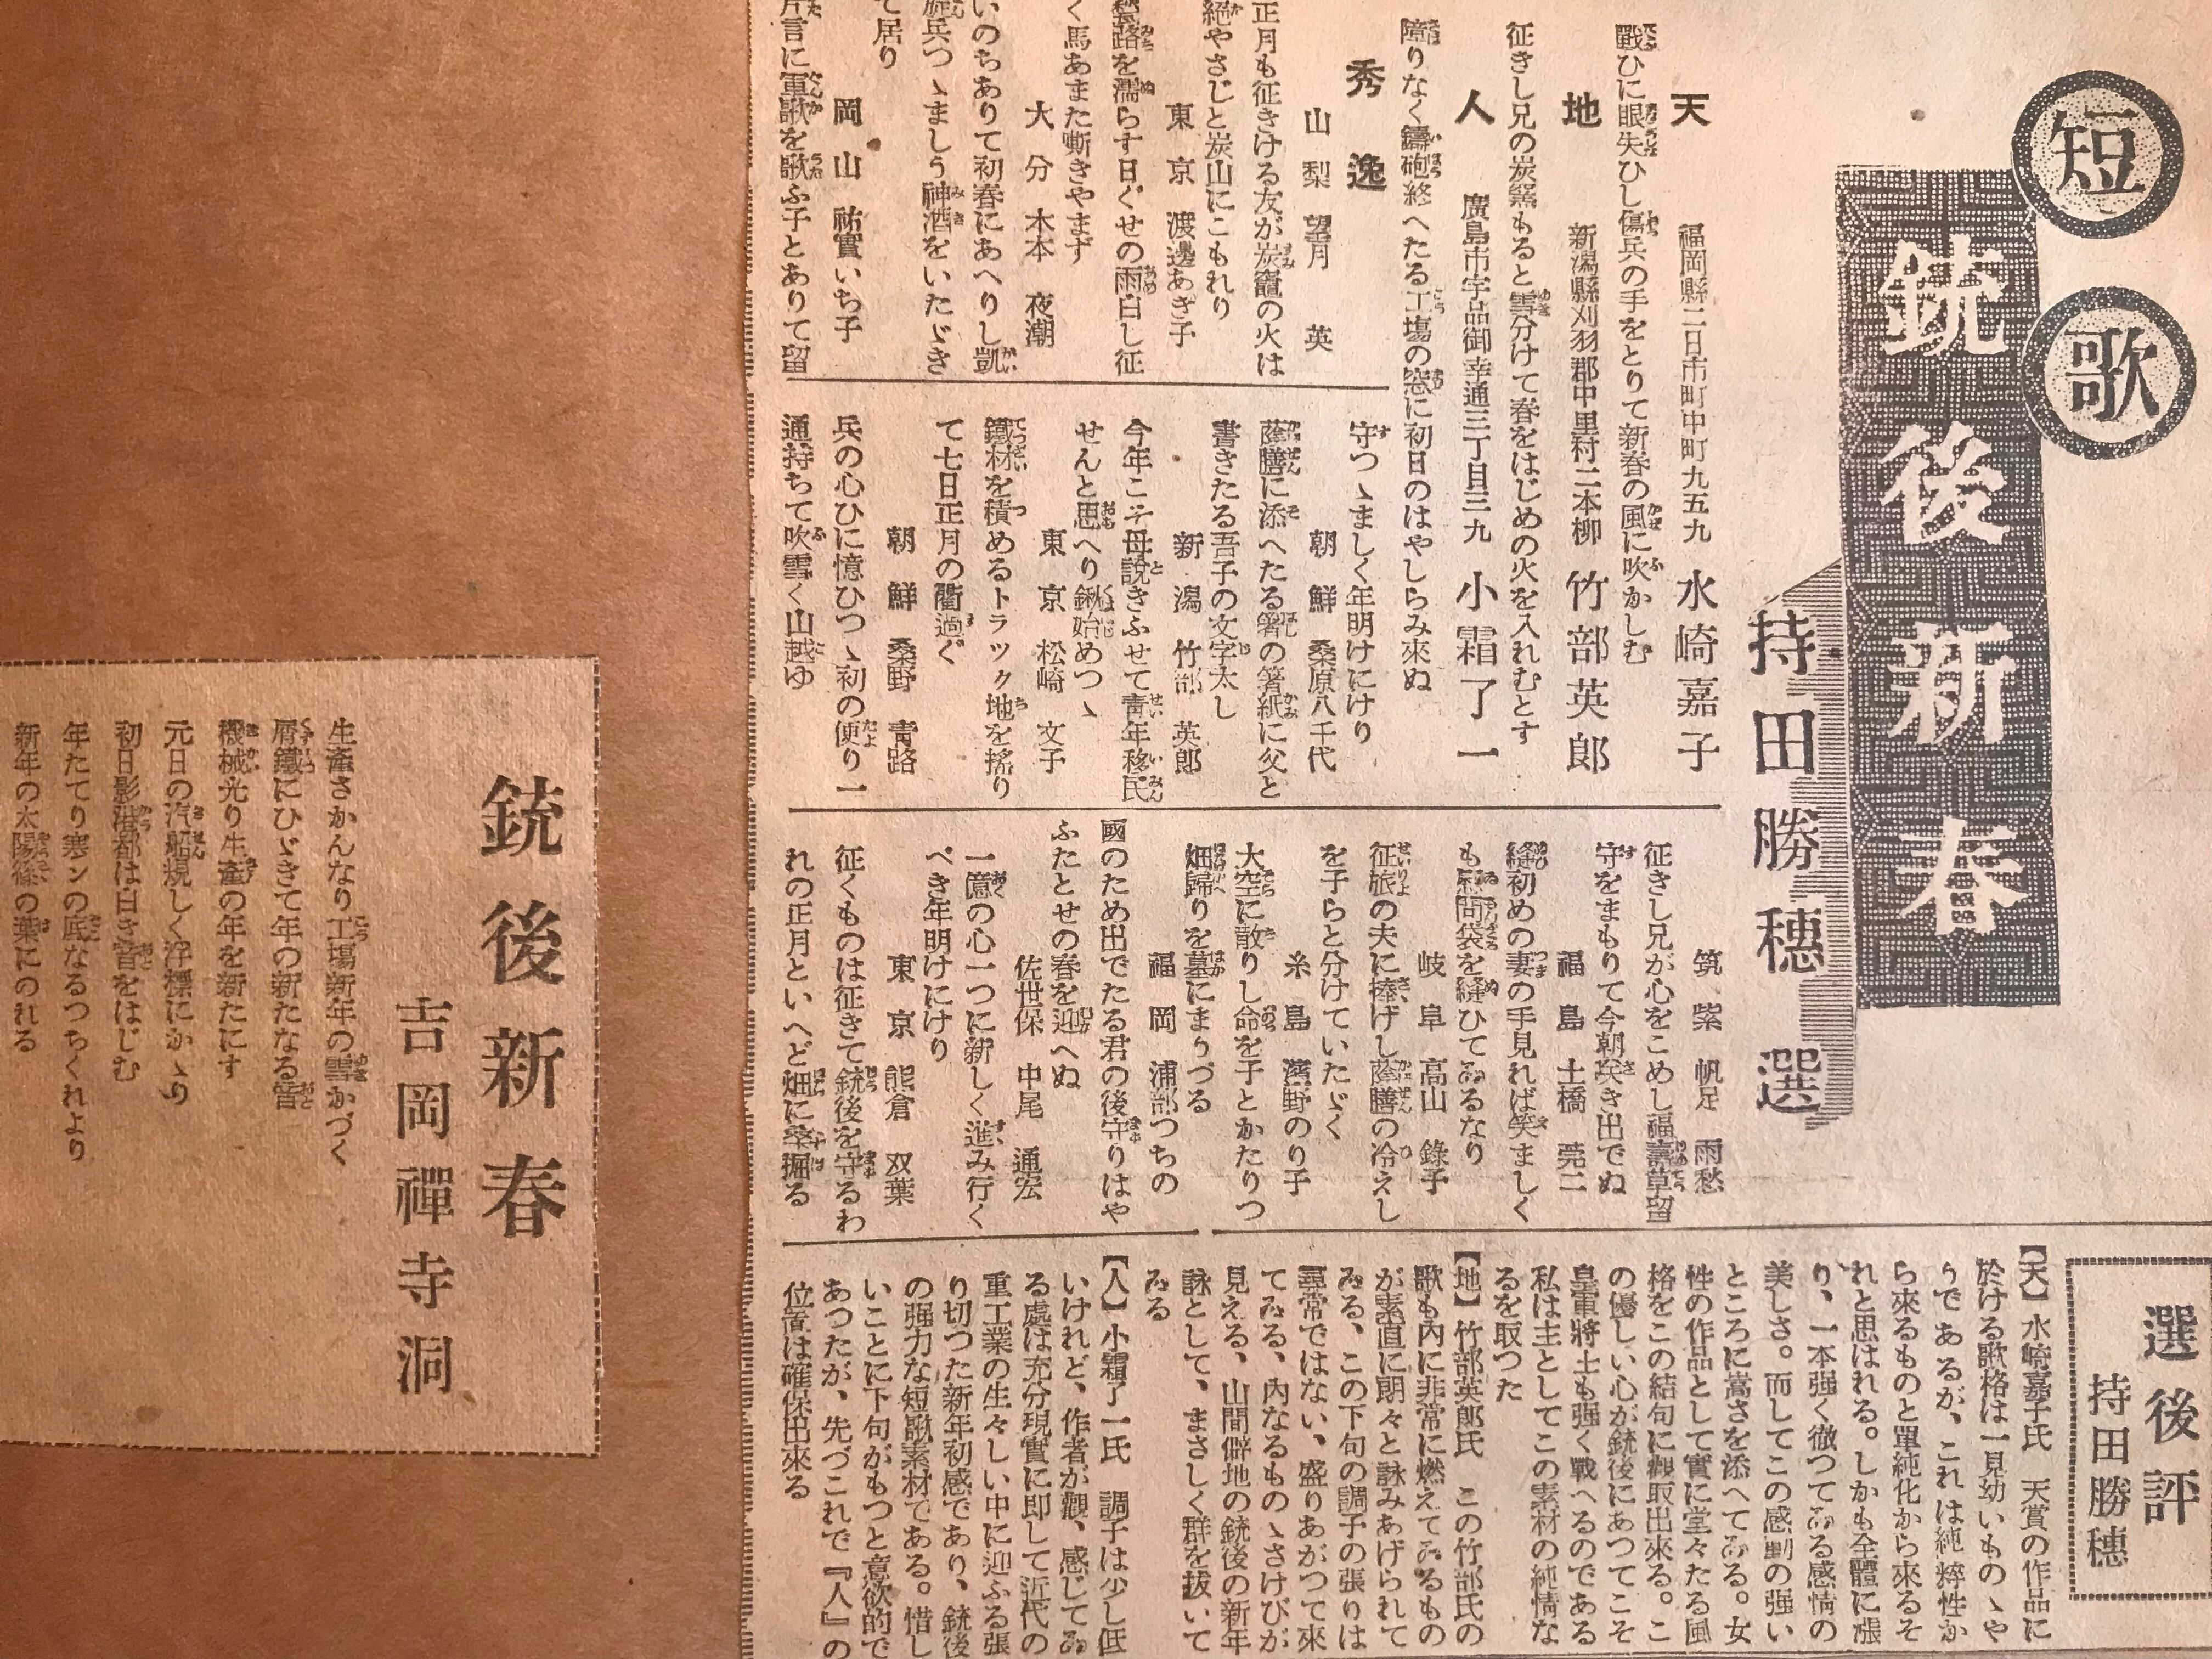 短歌
銃後新春
持田勝穗選
天 福岡縣二日市町中町九五九 水崎嘉子
戰ひに眼失ひし傷兵の手をとりて新春の風に吹かしむ
地 新潟縣刈羽郡中里村二本柳 竹部英郎
征きし兄の炭窯もると雪分けて春をはじめの火を入れむとす
人 廣島市宇品御幸通三丁目三九 小霜了一
障りなく鑄砲終へたる工場の窓に初日のはやしらみ來ぬ
秀逸
山梨 望月 英
正月も征きける友が炭竈の火は
絶やさじと炭山にこもれり
東京 渡邊あぎ子
路を濡らす日ぐせの雨白し征
く馬あまた嘶きやまず
大分 木本 夜潮
いのちありて初春にあへりし凱
旋兵つゝましう神酒をいたゞき
て居り
岡山 祐實いち子
片言に軍歌を歌ふ子とありて留
守つゝましく年明けにけり
朝鮮 桑原八千代
蔭膳に添へたる箸の箸紙に父と
書きたる吾子の文字太し
新潟 竹部 英郎
今年こそ母說きふせて青年移民
せんと思へり鍬始めつゝ
東京 松崎 文子
鐵材を積めるトラック地を搖り
て七日正月の衢過ぐ
朝鮮 桑野 青路
兵の心ひに憶ひつゝ初の便り一
通持ちて吹雪く山越ゆ
筑紫 帆足 雨愁
征きし兄が心をこめし福壽草留
守をまもりて今朝咲き出でぬ
福島 土橋 亮二
縫初めの妻の手見れば笑ましく
も慰問袋を縫ひてゐるなり
岐阜 高山 錄子
征旅の夫に捧げし蔭膳の冷えし
を子らと分けていたゞく
糸島 濱野のり子
大空に散りし命を子とかたりつ
畑歸りを墓にまうづる
福岡 浦部つちの
國のため出でたる君の後守りはや
ふたとせの春を迎へぬ
佐世保 中尾 通宏
一億の心一つに新しく進み行く
べき年明けにけり
東京 熊倉 双葉
征くものは征きて銃後を守るわ
れの正月といへど畑に桑掘る
選後評
持田勝穗
【天】水崎嘉子氏 天賞の作品に
於ける歌格は一見幼いものゝや
うであるが、これは純粹性か
ら來るものと單純化から來るそ
れと思はれる。しかも全體に漲
り、一本强く徹つてゐる感情の
美しさ。而してこの感動の强い
ところに嵩さを添へてゐる。女
性の作品として實に堂々たる風
格をこの結句に觀取出來る。こ
の優しい心が銃後にあつてこそ
皇軍將士も强く戰へるのである
私は主としてこの素材の純情な
るを取つた
【地】竹部英郎氏 この竹部氏の
歌も內に非常に燃えてゐるもの
が素直に朗々と詠みあげられて
ゐる、この下句の調子の張りは
尋常ではない、盛りあがつて來
てゐる、內なるものゝさけびが
見える、山間僻地の銃後の新年
詠として、まさしく群を拔いて
ゐる
【人】小霜了一氏 調子は少し低
いけれど、作者が觀、感じてゐ
る處は充分現實に即して近代の
重工業の生々しい中に迎ふる張
り切つた新年初感であり、銃後
の强力な短歌素材である。惜し
いことに下句がもつと意欲的で
あつたが、先づこれで『人』の
位置は確保出來る
銃後新春
吉岡禪寺洞
生產さかんなり工場新年の雪かづく
屑鐵にひゞきて年の新たなる音
機械光り生產の年を新たにす
元日の汽船規しく浮標にかゝり
初日影港都は白き音をはじむ
年たてり寒ンの底なるつちくれより
新年の太陽篠の葉にのれる